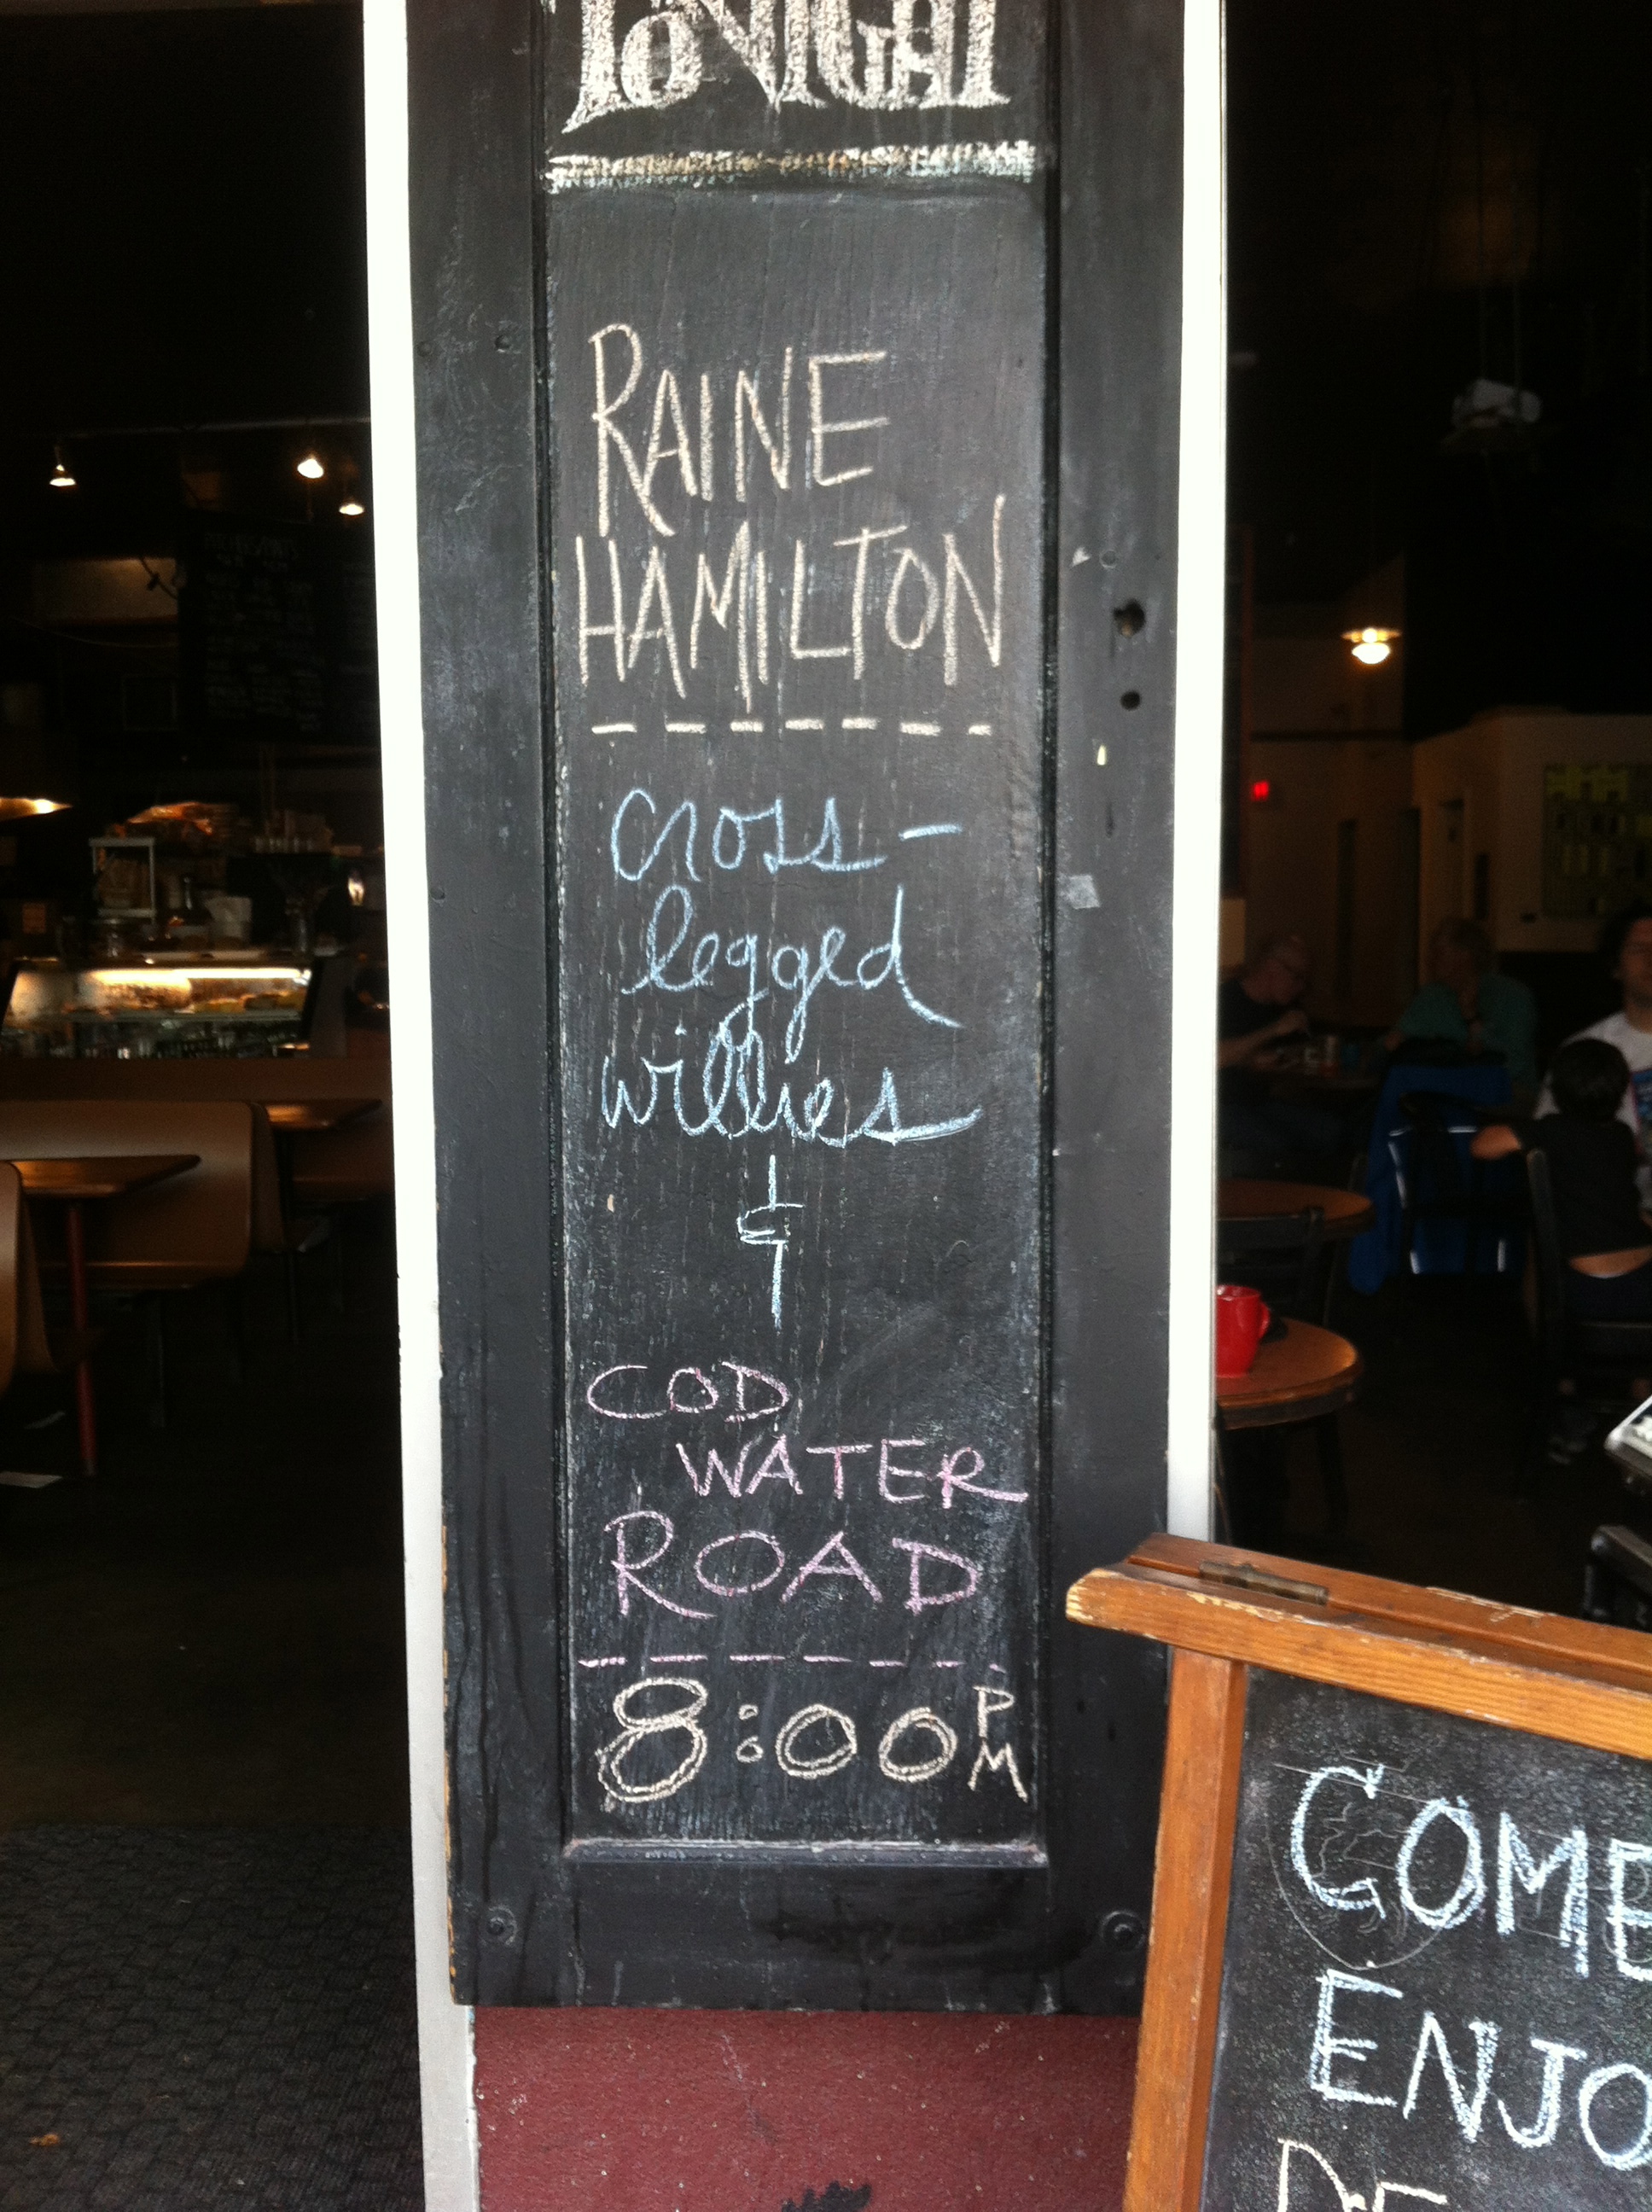 TONIGHT
RAINE
HAMILTON
cross-
legged
willies
&
COD
WATER
ROAD
8:00 PM
COME
ENJO